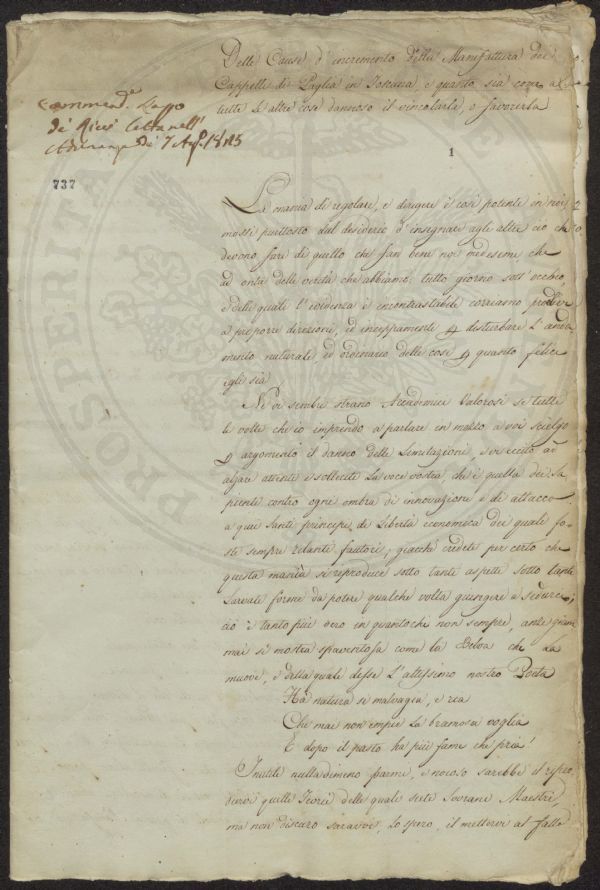 Delle Cause d'incremento della Manifattura dei
Cappelli di Paglia in Toscana e quanto sia come a
tutte le altre cose dannoso il vincolarla, o favorirla
7 Ag. 1815
1
737
La mania di regolare, e dirigere è così potente in noi
mossi piuttosto dal desiderio d'insegnare agli altri ciò che
devono fare di quello che far bene noi medesimi che
ad onta delle verità che abbiamo tutto giorno sott'occhio,
e delle quali l'evidenza è incontrastabile corriamo
a proporre direzioni, ed inceppamenti p disturbare l'anda
mento naturale ed ordinario delle cose p quanto felice
egli sia
Nè vi sembri strano Accademici Valorosi se tutte
le volte che io imprendo a parlare in mezzo a voi scielgo
p argomento il danno delle Limitazioni, e vi eccito ad
alzare attenti e solleciti la voce vostra, che è quella dei Sa
pienti contro ogni ombra di innovazione e di attacco
a quei santi principj di Libertà economica dei quali fo=
ste sempre zelanti fautori; giacchè credete per certo che
questa manìa si riproduce sotto tanti aspetti sotto tante
Larvate forme da potere qualche volta giungere a sedurci;
ciò è tanto più vero in quantochè non sempre, anzi giam
mai si mostra spaventosa come la Belva che la
muove, e della quale disse l'altissimo nostro Poeta
Ha natura sì malvagia, e rea
Che mai non empie la bramosa voglia
E dopo il pasto ha più fame che pria!
Inutile nulladimeno parmi, e nojoso sarebbe il
quelle Teorie delle quali siete Sovrani Maestri,
ma non discaro saravvi, lo spero, il mettervi al fatto
PROSPERITÀ